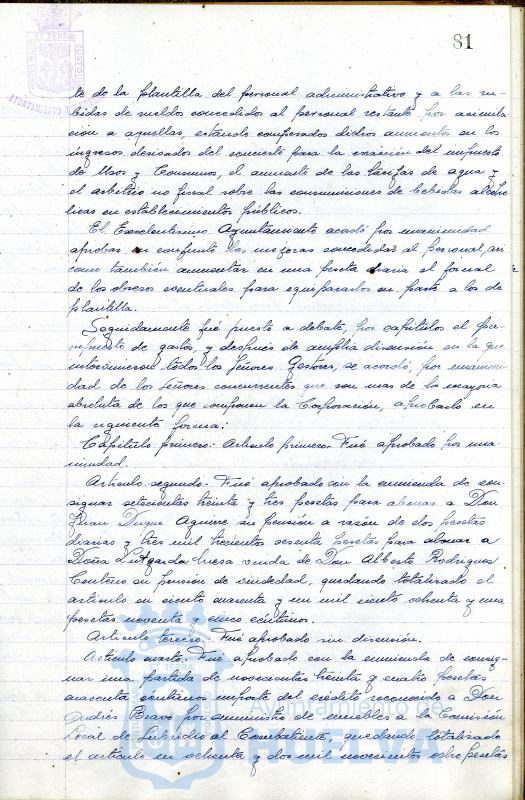 81
te de la plantilla del personal administrativo y a las su-
bidas de sueldos concedidos al personal restante por asimila-
ción a aquellas, estando compensados dichos aumentos en los
ingresos derivados del concierto para la exacción del impuesto
de Usos y Consumos, el aumento de las tarifas de agua y
el arbitrio no fiscal sobre las consumiciones de bebidas alcohó-
licas en establecimientos públicos.
El Excelentísimo Ayuntamiento acordó por unanimidad
aprobar en conjunto las mejoras concedidas al personal, así
como también aumentar en una peseta diaria el jornal
de los obreros eventuales para equipararlos en parte a los de
plantilla.
Seguidamente fué puesto a debate, por capítulos el pre-
supuesto de gastos y después de amplia discusión en la que
intervinieron todos los Señores Gestores, se acordó, por unanimi-
dad de los Señores concurrentes que son mas de la mayoría
absoluta de los que componen la Corporación, aprobarlo en
la siguiente forma:
Capítulo primero: Artículo primero.- Fué aprobado por una-
nimidad.
Artículo segundo.- Fué aprobado con la enmienda de con-
signar setecientas treinta y tres pesetas para abonar a Don
Juan Duque Aguirre su pensión a razón de dos pesetas
diarias y tres mil trecientos sesenta pesetas para abonar a
Doña Lutgarda viuda de Don Alberto Rodriguez
Centeno su pensión de viudedad, quedando totalizado el
artículo en ciento cuarenta y un mil ciento ochenta y una
pesetas noventa y cinco céntimos.
Artículo tercero.- Fué aprobado sin discusión.
Artículo cuarto.- Fué aprobado con la enmienda de consig-
nar una partida de novecientas treinta y cuatro pesetas
cuarenta céntimos importe del crédito reconocido a Don
Andrés Bravo por suministro de muebles a la Comisión
Local de Subsidio al Combatiente, quedando totalizado
el artículo en ochenta y dos mil novecientos ocho pesetas
Ayuntamiento de
HUELVA